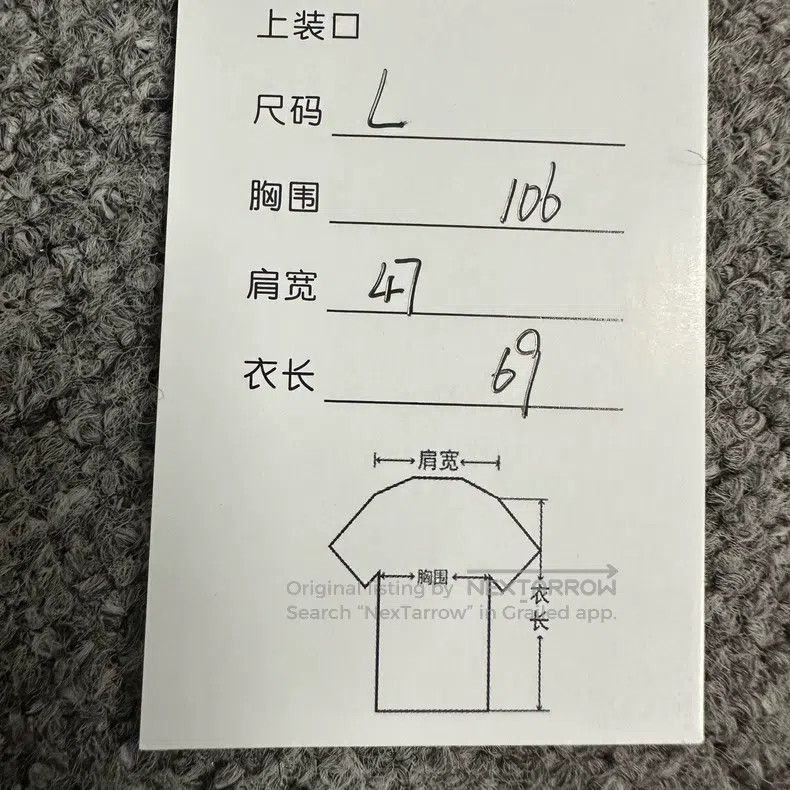 上装口
尺码 L
胸围 106
肩宽 47
衣长 69
肩宽
胸围
衣长
Original listing by NEXTARROW
Search “NexTarrow” in Grailed app.